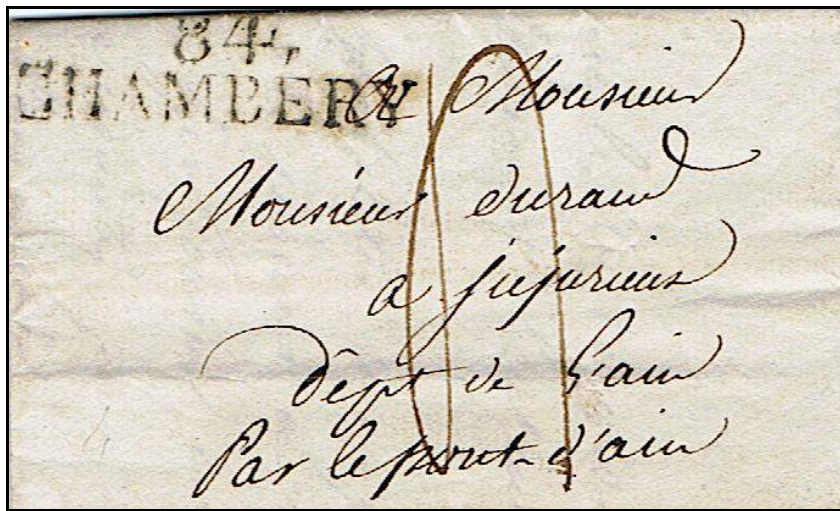 84,
CHAMBERY
A Monsieur
Monsieur durand
a jujurieux
dépt de l'ain
Par le pont d'ain